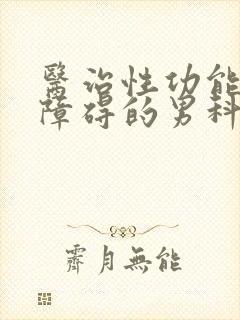 醫治性功能
障碍的男科
霽月無能